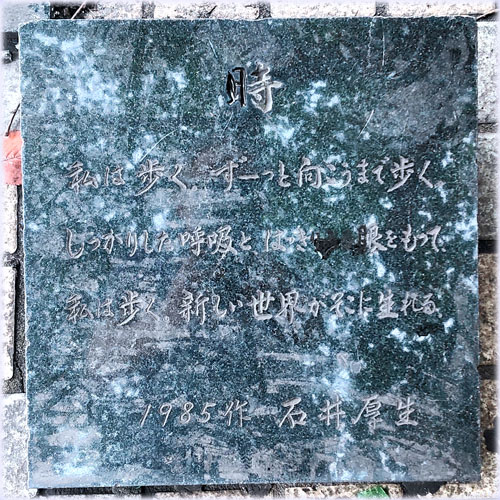 時
私は歩く、ずーっと向こうまで歩く。
しっかりした呼吸とはっき 眼をもって、
私は歩く、新しい世界がそこに生れる。
1985作 石井厚生